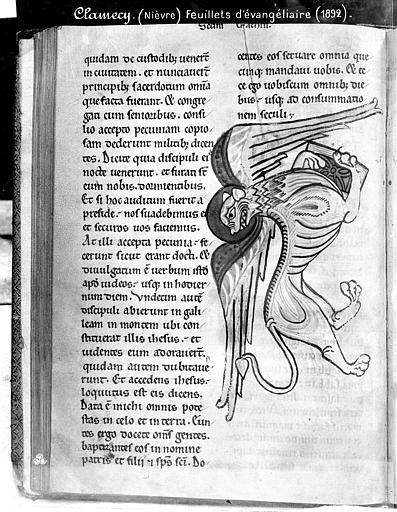 Clamecy. (Nièvre) Feuillets d'évangéliaire (1892).
quidam de custodib; venerť
in civitatem. et nunciaverť
principib; sacerdotum omīa
que facta fuerant. Et congre
gati cum senioribus. consi
lio accepto pecuniam copio
sam dederunt militib; dicen
tes. Dicite quia discipuli ei'
nocte venerunt. et furati sť
eum nobis dormientibus.
Et si hoc auditum fuerit a
preside. nos suadebimus ei
et securos vos faciemus.
At illi accepta pecunia. fe
cerunt sicut erant docti. Et
divulgatum ē verbum istđ
apđ iudeos. usq; in hodier
num diem. Undecim autē
discipuli abierunt in gali
leam in montem ubi con
stituerat illis ihesus. et
videntes eum adoraverť.
quidam autem dubitave
runt. Et accedens ihesus.
locutus est eis dicens.
Data ē michi omnis pote
stas in celo et in terra. Eun
tes ergo docete om̄s gentes.
baptizantes eos in nomine
patris et filii et sp̄s sc̄i. Do
centes eos servare omnia que
cunq; mandavi vobis. Et ec
ce ego vobiscum omnib; die
bus. usq; ad consummatio
nem seculi.